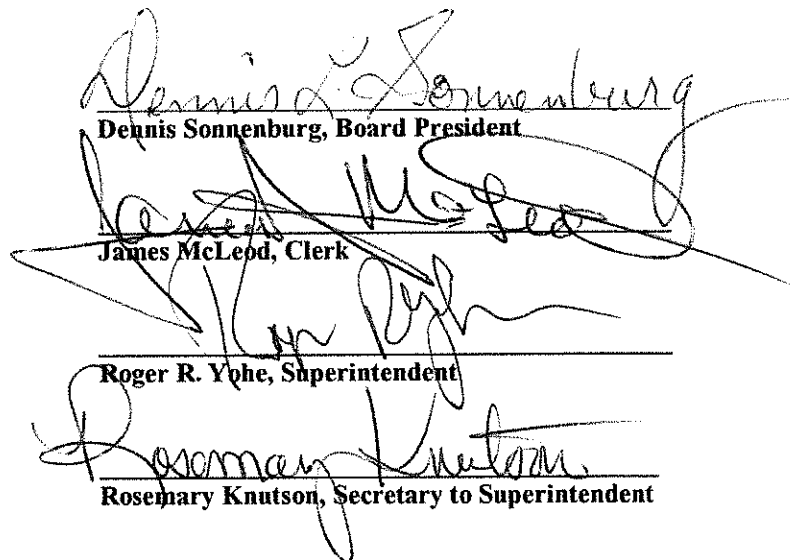 Dennis L. Sonnenburg
Dennis Sonnenburg, Board President
James McLeod
James McLeod, Clerk
Roger R. Yohe, Superintendent
Rosemary Knutson
Rosemary Knutson, Secretary to Superintendent